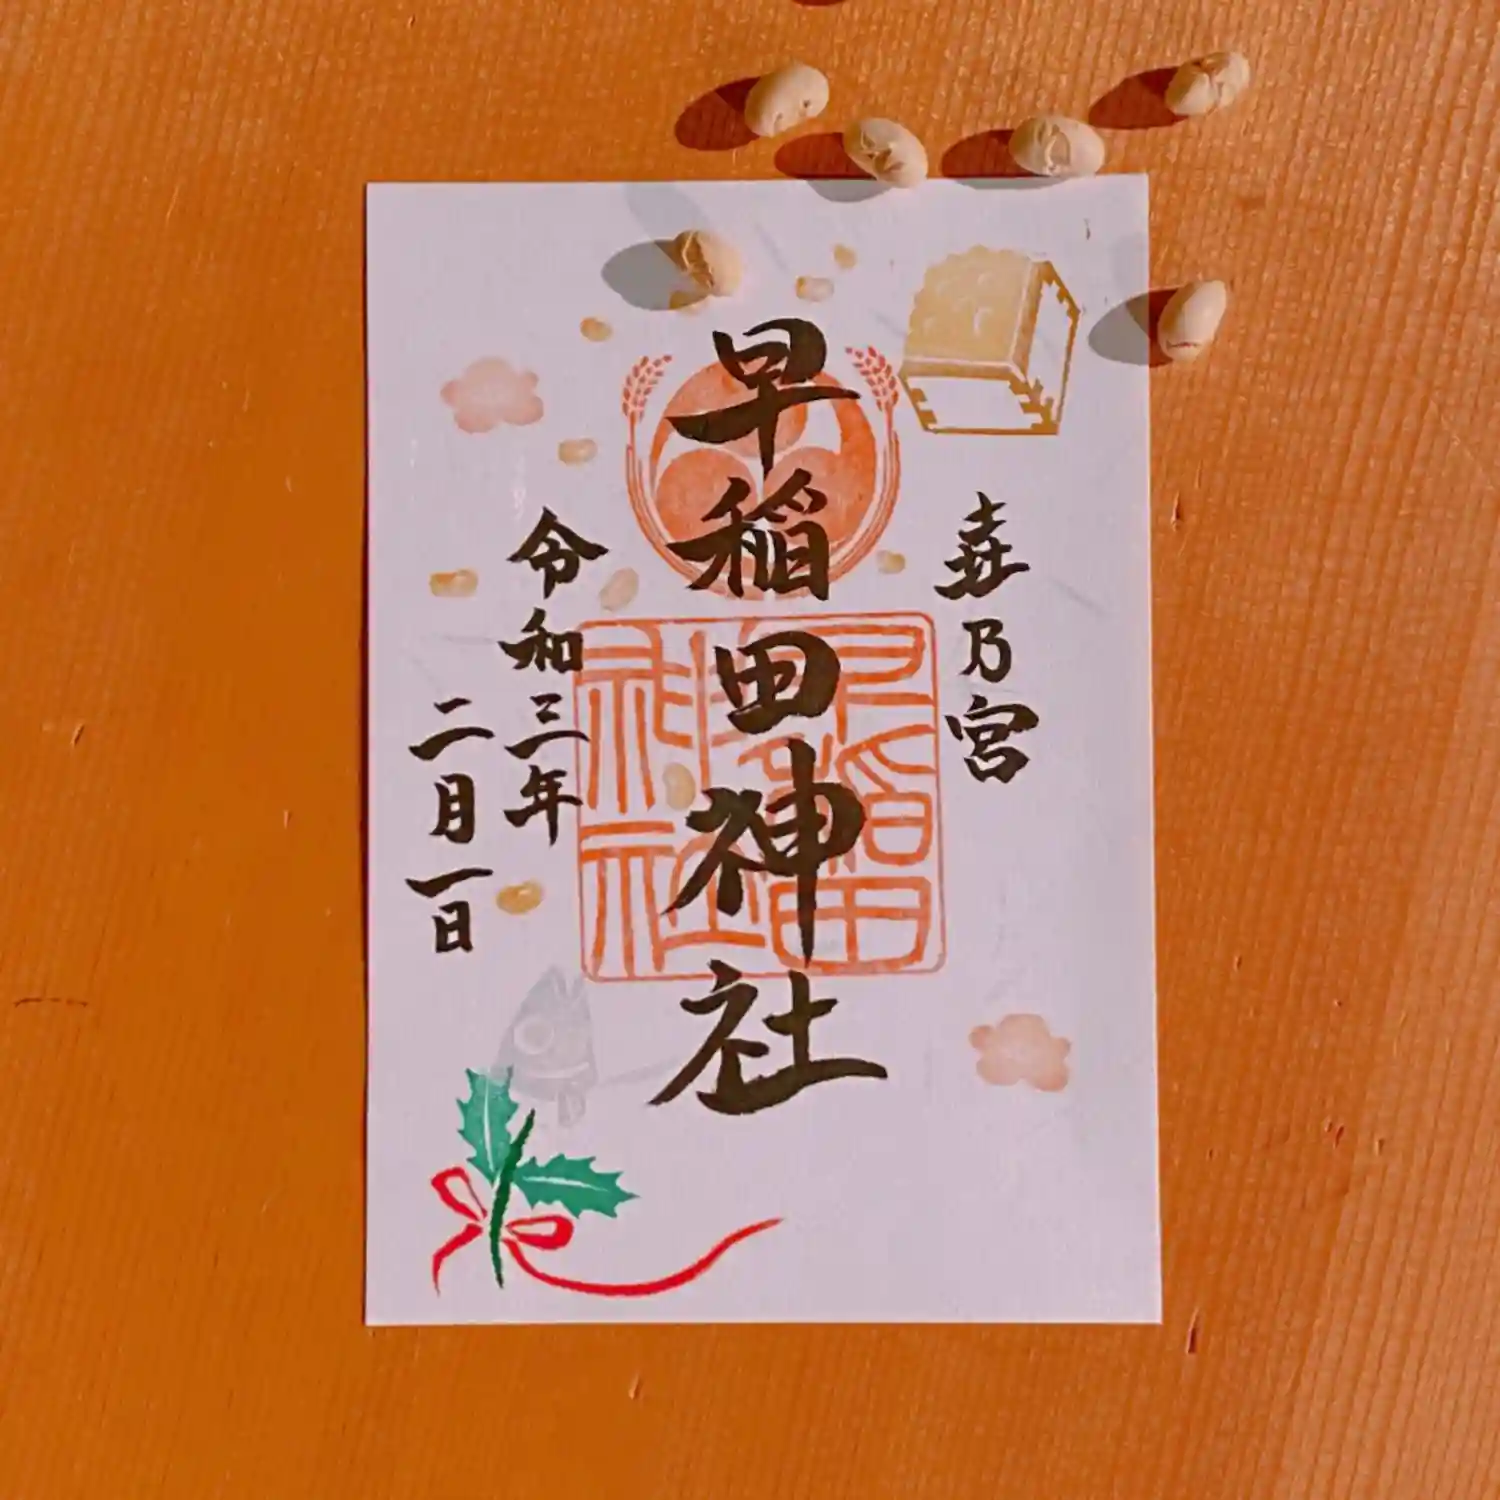 㐂乃宮
早稲田神社
早稲田神社
令和三年
二月一日